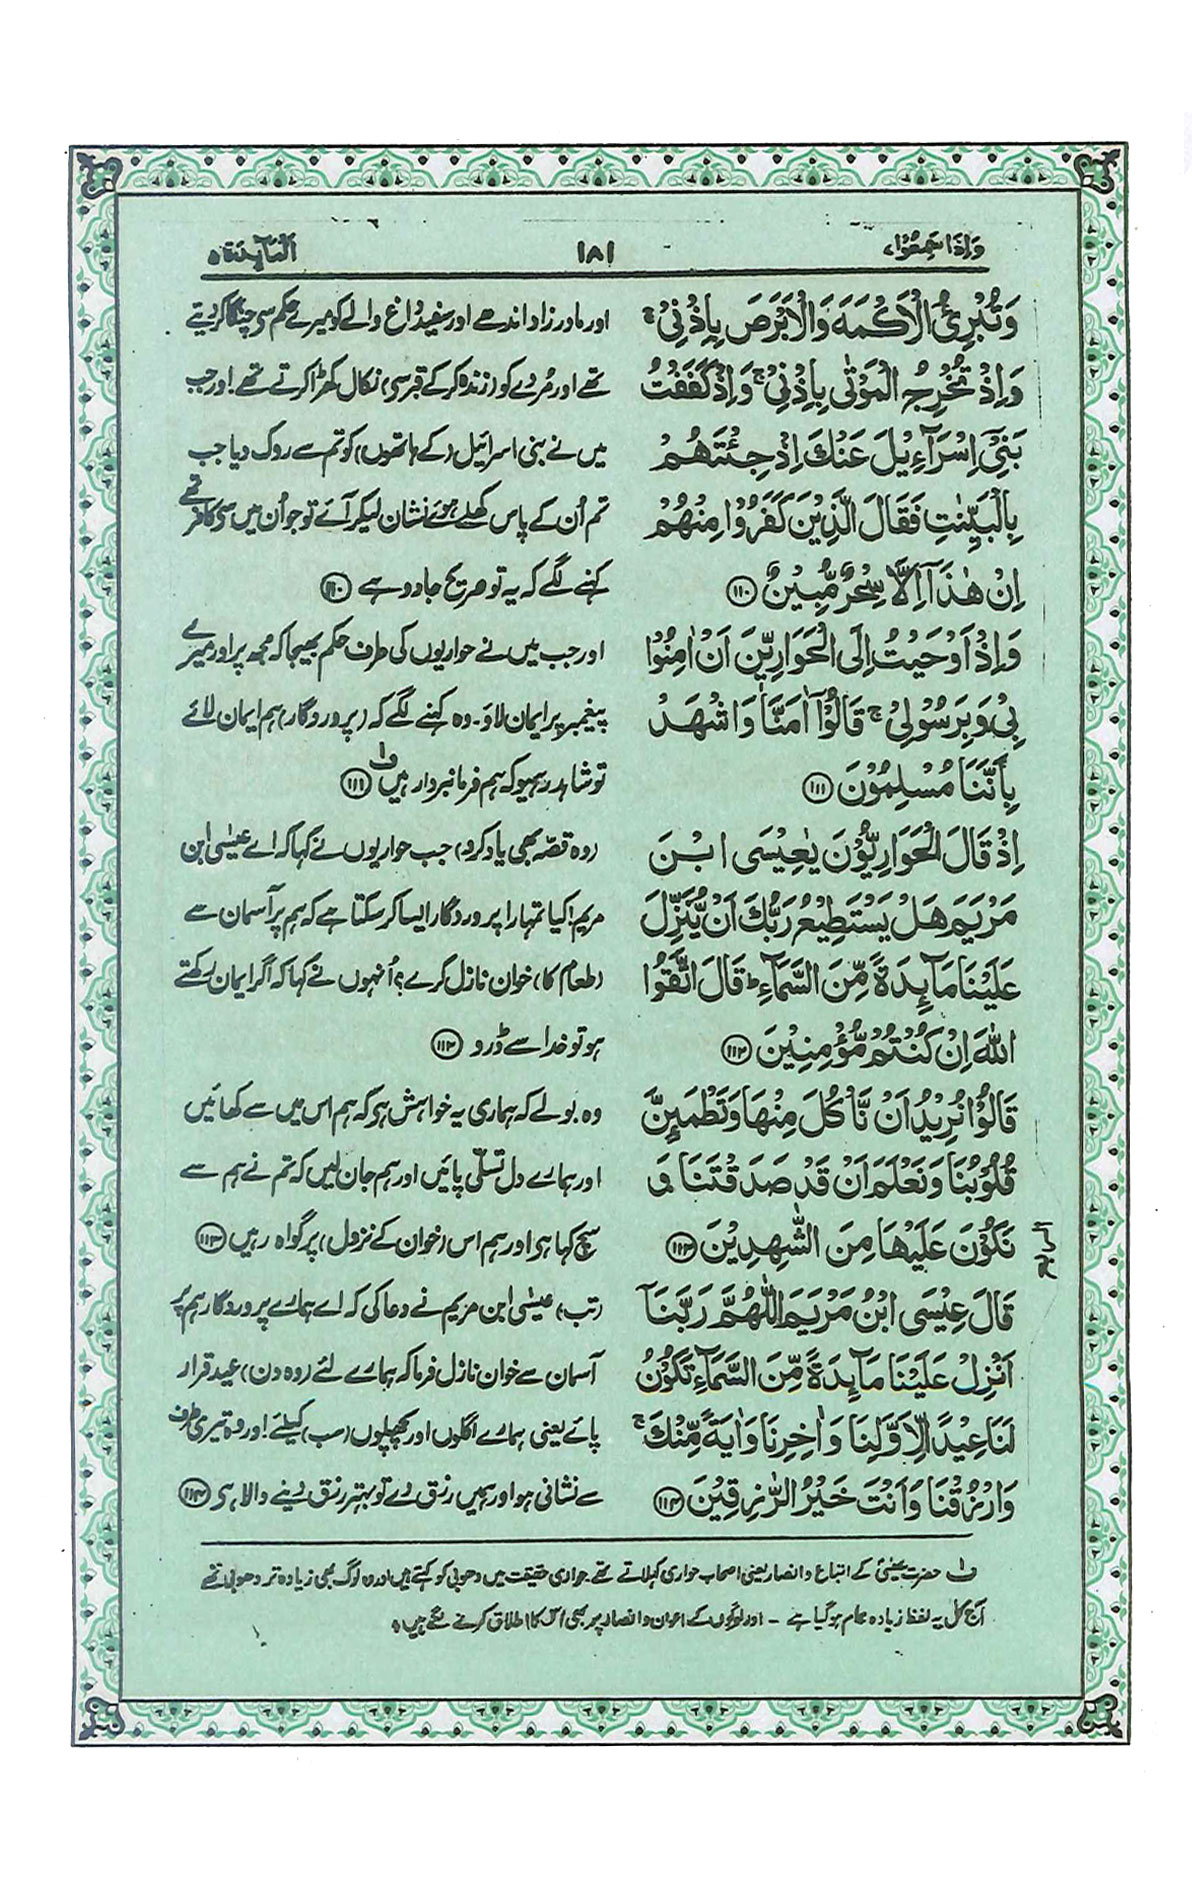 وَاِذَا سَمِعُوْا،
١٨١
اَلْمَآىِٕدَة ٥
وَتُبْرِئُ الْاَكْمَهَ وَالْاَبْرَصَ بِاِذْنِيْ ۚ
وَاِذْ تُخْرِجُ الْمَوْتٰى بِاِذْنِيْ ۚ وَاِذْ كَفَفْتُ
بَنِيْۤ اِسْرَآءِيْلَ عَنْكَ اِذْ جِئْتَهُمْ
بِالْبَيِّنٰتِ فَقَالَ الَّذِيْنَ كَفَرُوْا مِنْهُمْ
اِنْ هٰذَاۤ اِلَّا سِحْرٌ مُّبِيْنٌ ١١٠
وَاِذْ اَوْحَيْتُ اِلَى الْحَوَارِيّٖنَ اَنْ اٰمِنُوْا
بِيْ وَبِرَسُوْلِيْ ۚ قَالُوْۤا اٰمَنَّا وَاشْهَدْ
بِاَنَّنَا مُسْلِمُوْنَ ١١١
اِذْ قَالَ الْحَوَارِيُّوْنَ يٰعِيْسَى ابْنَ
مَرْيَمَ هَلْ يَسْتَطِيْعُ رَبُّكَ اَنْ يُّنَزِّلَ
عَلَيْنَا مَآىِٕدَةً مِّنَ السَّمَآءِ ؕ قَالَ اتَّقُوا
اللّٰهَ اِنْ كُنْتُمْ مُّؤْمِنِيْنَ ١١٢
قَالُوْا نُرِيْدُ اَنْ نَّاْكُلَ مِنْهَا وَتَطْمَىِٕنَّ
قُلُوْبُنَا وَنَعْلَمَ اَنْ قَدْ صَدَقْتَنَا وَ
نَكُوْنَ عَلَيْهَا مِنَ الشّٰهِدِيْنَ ١١٣
قَالَ عِيْسَى ابْنُ مَرْيَمَ اللّٰهُمَّ رَبَّنَاۤ
اَنْزِلْ عَلَيْنَا مَآىِٕدَةً مِّنَ السَّمَآءِ تَكُوْنُ
لَنَا عِيْدًا لِّاَوَّلِنَا وَاٰخِرِنَا وَاٰيَةً مِّنْكَ ۚ
وَارْزُقْنَا وَاَنْتَ خَيْرُ الرّٰزِقِيْنَ ١١٤
اور مادر زاد اندھے اور سفید داغ والے کو میرے حکم سی چنگا کر دیتے
تھے اور مُردے کو (زندہ کرکے قبر سی) نکال کھڑا کرتے تھے! اور جب
میں نے بنی اسرائیل (کے ہاتھوں) کو تم سے روک دیا جب
تم اُن کے پاس کھلے ہوئے نشان لیکر آئے تو جو اُن میں سی کافر تھے
کہنے لگے کہ یہ تو صریح جادو ہے ١١٠
اور جب میں نے حواریوں کی طرف حکم بھیجا کہ مجھ پر اور میرے
پیغمبر پر ایمان لاؤ۔ وہ کہنے لگے کہ (پروردگار) ہم ایمان لائے
تو شاہد رہیو کہ ہم فرمانبردار ہیں ف۱ ١١١
(وہ قصّہ بھی یاد کرو) جب حواریوں نے کہا کہ اے عیسیٰ ابن
مریم! کیا تمہارا پروردگار ایسا کر سکتا ہے کہ ہم پر آسمان سے
(طعام کا) خوان نازل کرے؟ اُنہوں نے کہا کہ اگر ایمان رکھتے
ہو تو خدا سے ڈرو ١١٢
وہ بولے کہ ہماری یہ خواہش ہی کہ ہم اس میں سے کھائیں
اور ہمارے دل تسلّی پائیں اور ہم جان لیں کہ تم نے ہم سے
سچ کہا ہی اور ہم اس (خوان کے نزول) پر گواہ رہیں ١١٣
(تب) عیسٰی ابن مریم نے دعا کی کہ اے ہمارے پروردگار ہم پر
آسمان سے خوان نازل فرما کہ ہمارے لئے (وہ دن) عید قرار
پائے یعنی ہمارے اگلوں اور پچھلوں (سب) کیلئے! اور وہ تیری طرف
سے نشانی ہو اور ہمیں رزق دے تو بہتر رزق دینے والا ہی ١١٤
ف۱ حضرت عیسیٰؑ کے اتباع و انصار یعنی اصحاب حواری کہلاتے تھے۔ حواری حقیقت میں دھوبی کو کہتے ہیں اور وہ لوگ بھی زیادہ تر دھوبی تھے
آج کل یہ لفظ زیادہ عام ہو گیا ہے - اور لوگوں کے اعوان و انصار پر بھی اس کا اطلاق کرنے لگے ہیں ٭